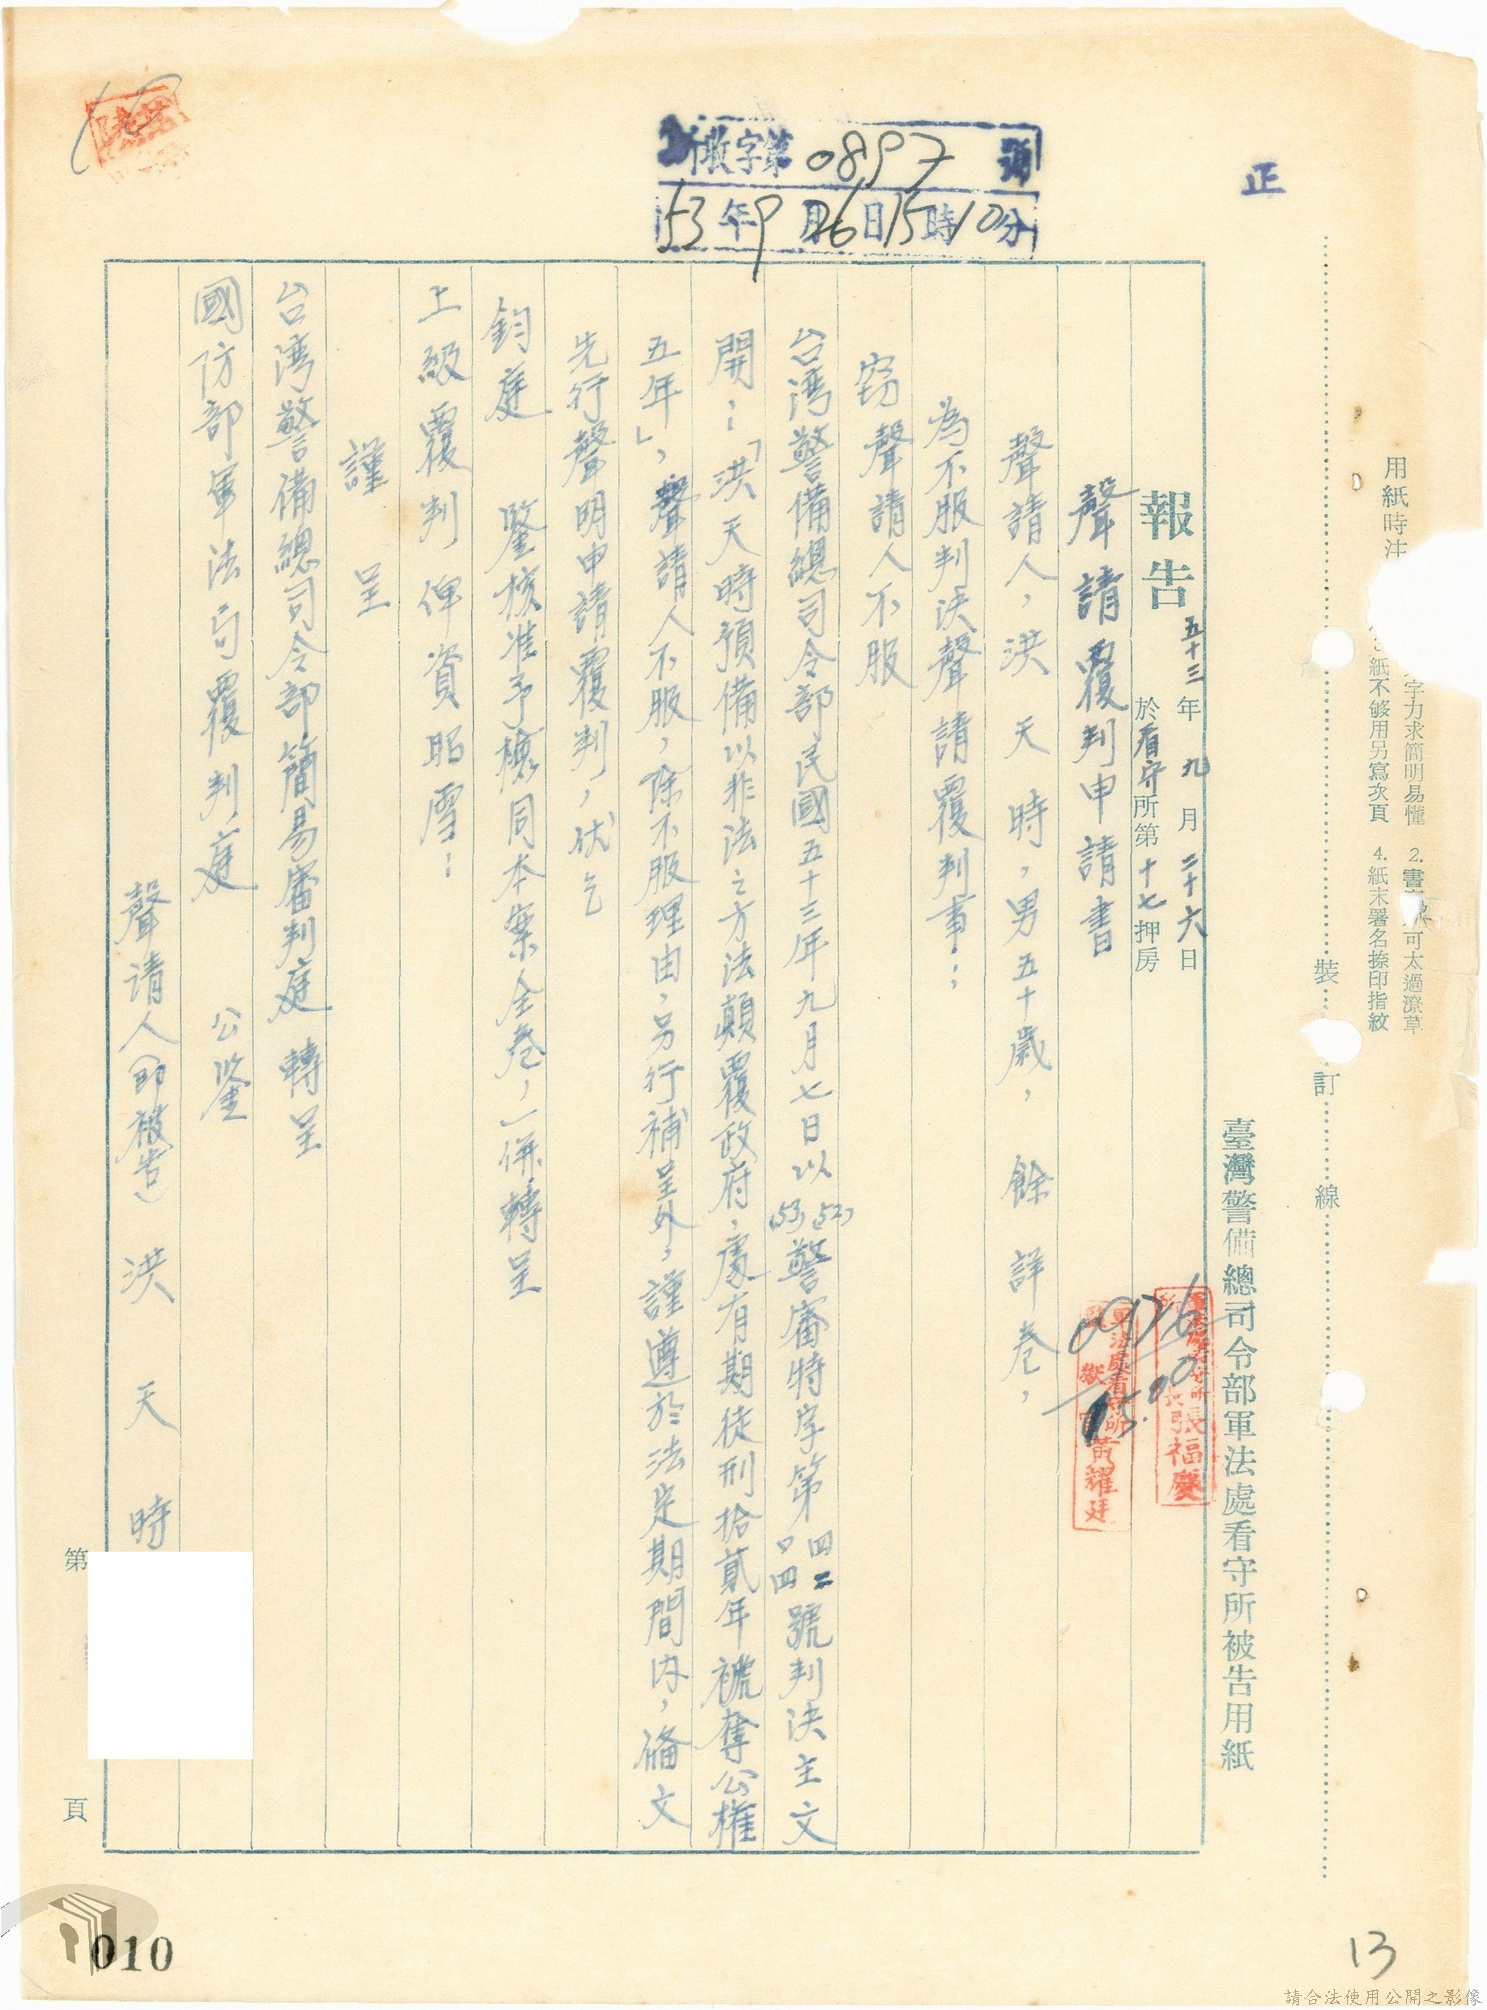 正
敢字第0897號
53年9月26日15時10分
用紙時注
字力求簡明易懂 2.書
可太過潦草
紙不够用另寫次頁 4.紙末署名捺印指紋
裝 訂 線
臺灣警備總司令部軍法處看守所被告用紙
報告 五十三年九月二十六日
於看守所第十七押房
0926
15.00
張福慶
軍法處看守所
黃耀廷
聲請覆判申請書
聲請人，洪天時，男五十歲，餘詳卷，
為不服判決聲請覆判事：
窃聲請人不服
台湾警備總司令部民國五十三年九月七日以(53)(52)警審特字第四二〇四號判決主文
開：「洪天時預備以非法之方法顛覆政府，處有期徒刑拾貳年褫奪公權
五年」，聲請人不服，除不服理由，另行補呈外，謹遵於法定期間内，備文
先行聲明申請覆判，伏乞
鈞庭 鑒核准予檢同本案全卷，一併轉呈
上級覆判俾資昭雪：
謹 呈
台湾警備總司令部簡易審判庭 轉呈
國防部軍法局覆判庭 公鑒
聲请人(即被告) 洪天時
第 頁
010
13
請合法使用公開之影像